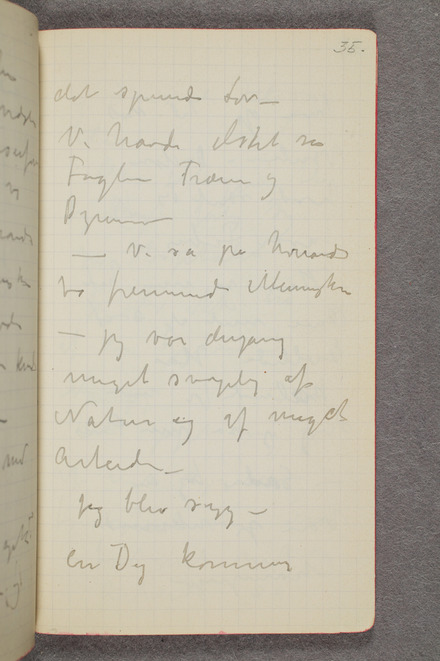 35.
det
Vi havde elsket
Fuglen Træer og
Dyrene —
— Vi så på hinanden
to fremmede Mennesker
— jeg var dengang
meget svagelig af
Natur og af meget
Arbeide —
jeg blev syg —
en Dag kommer